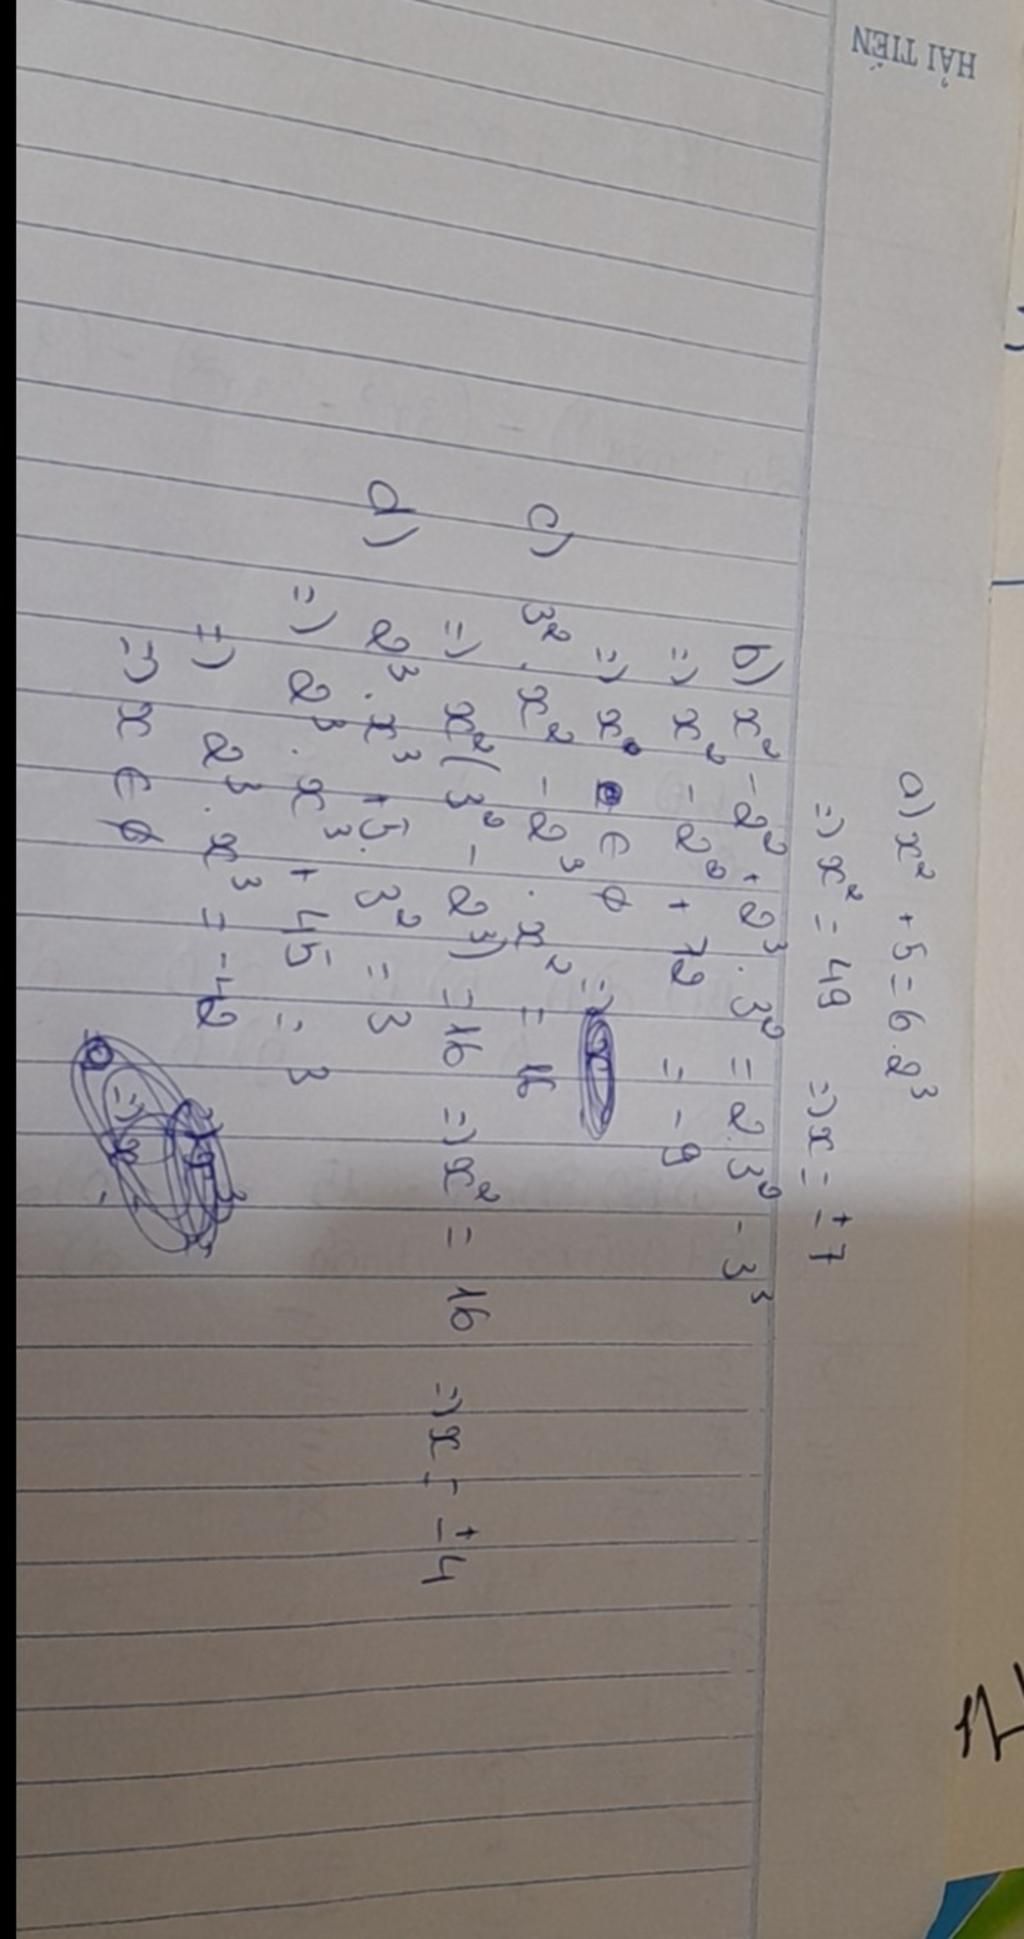 HẢI TIẾN
a) x² + 5 = 6.2³
=) x² = 49 =) x = ±7
b) x² - 2² + 2³ . 3² = 2.3² - 3³
=) x² - 2² + 72 = -9
=) x ∈ ∅ =)
c) 3² . x² - 2³ . x² = 16
=) x² (3² - 2³) = 16 =) x² = 16 =) x = ±4
d) 2³ . x³ + 5. 3² = 3
=) 2³ . x³ + 45 = 3
=) 2³ . x³ = -42
=) x ∈ ∅